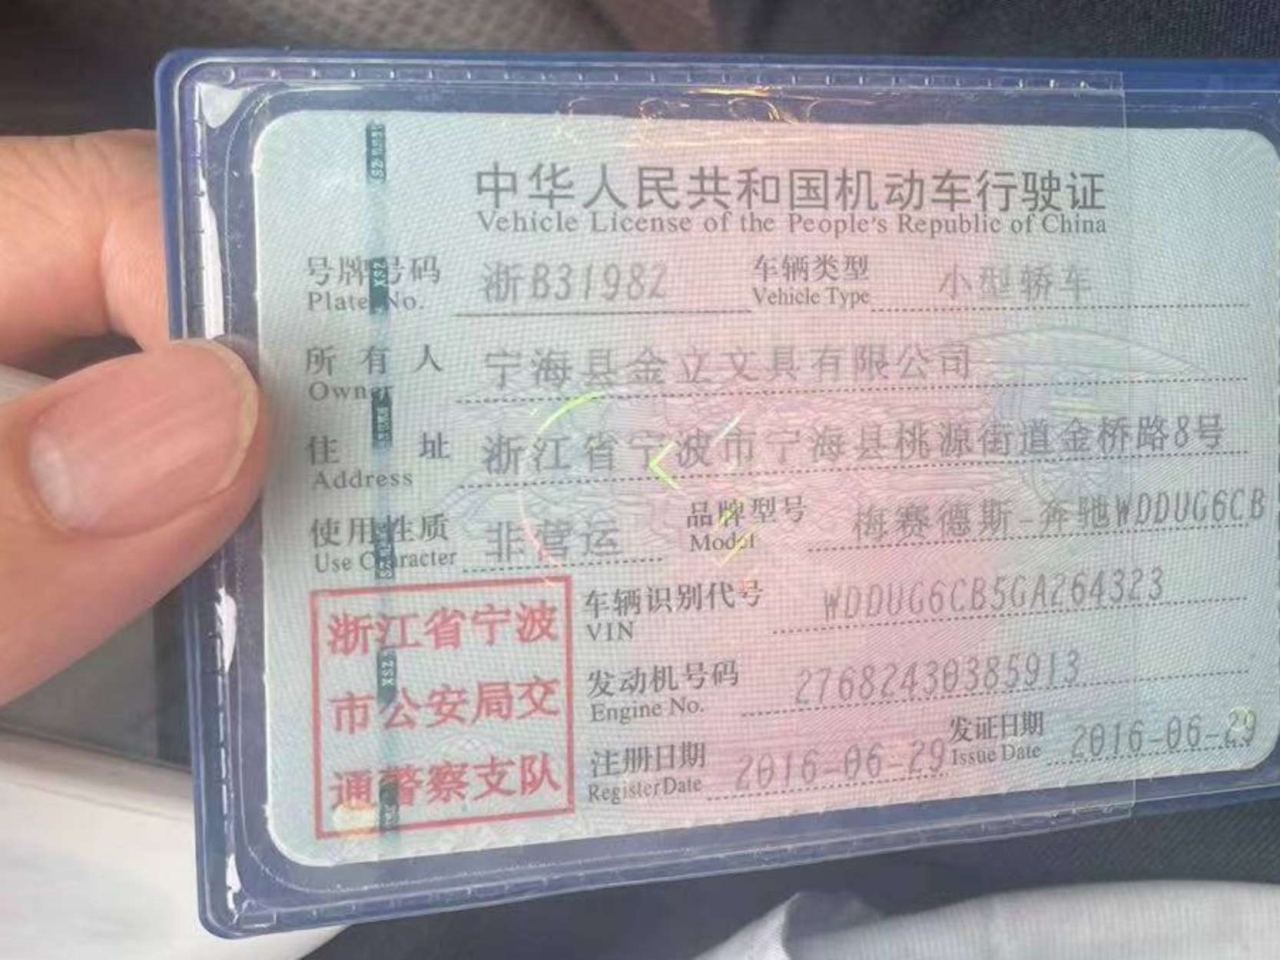 中华人民共和国机动车行驶证
Vehicle License of the People's Republic of China
号牌号码 浙B31982 车辆类型 小型轿车
Plate No. Vehicle Type
所有人 宁海县金立文具有限公司
Owner
住址 浙江省宁波市宁海县桃源街道金桥路8号
Address
使用性质 非营运 品牌型号 梅赛德斯-奔驰WDDUG6CB
Use Character Model
车辆识别代号 WDDUG6CB5GA264323
VIN
发动机号码 27682430385913
Engine No.
注册日期 2016-06-29 发证日期 2016-06-29
Register Date Issue Date
浙江省宁波
市公安局交
通警察支队